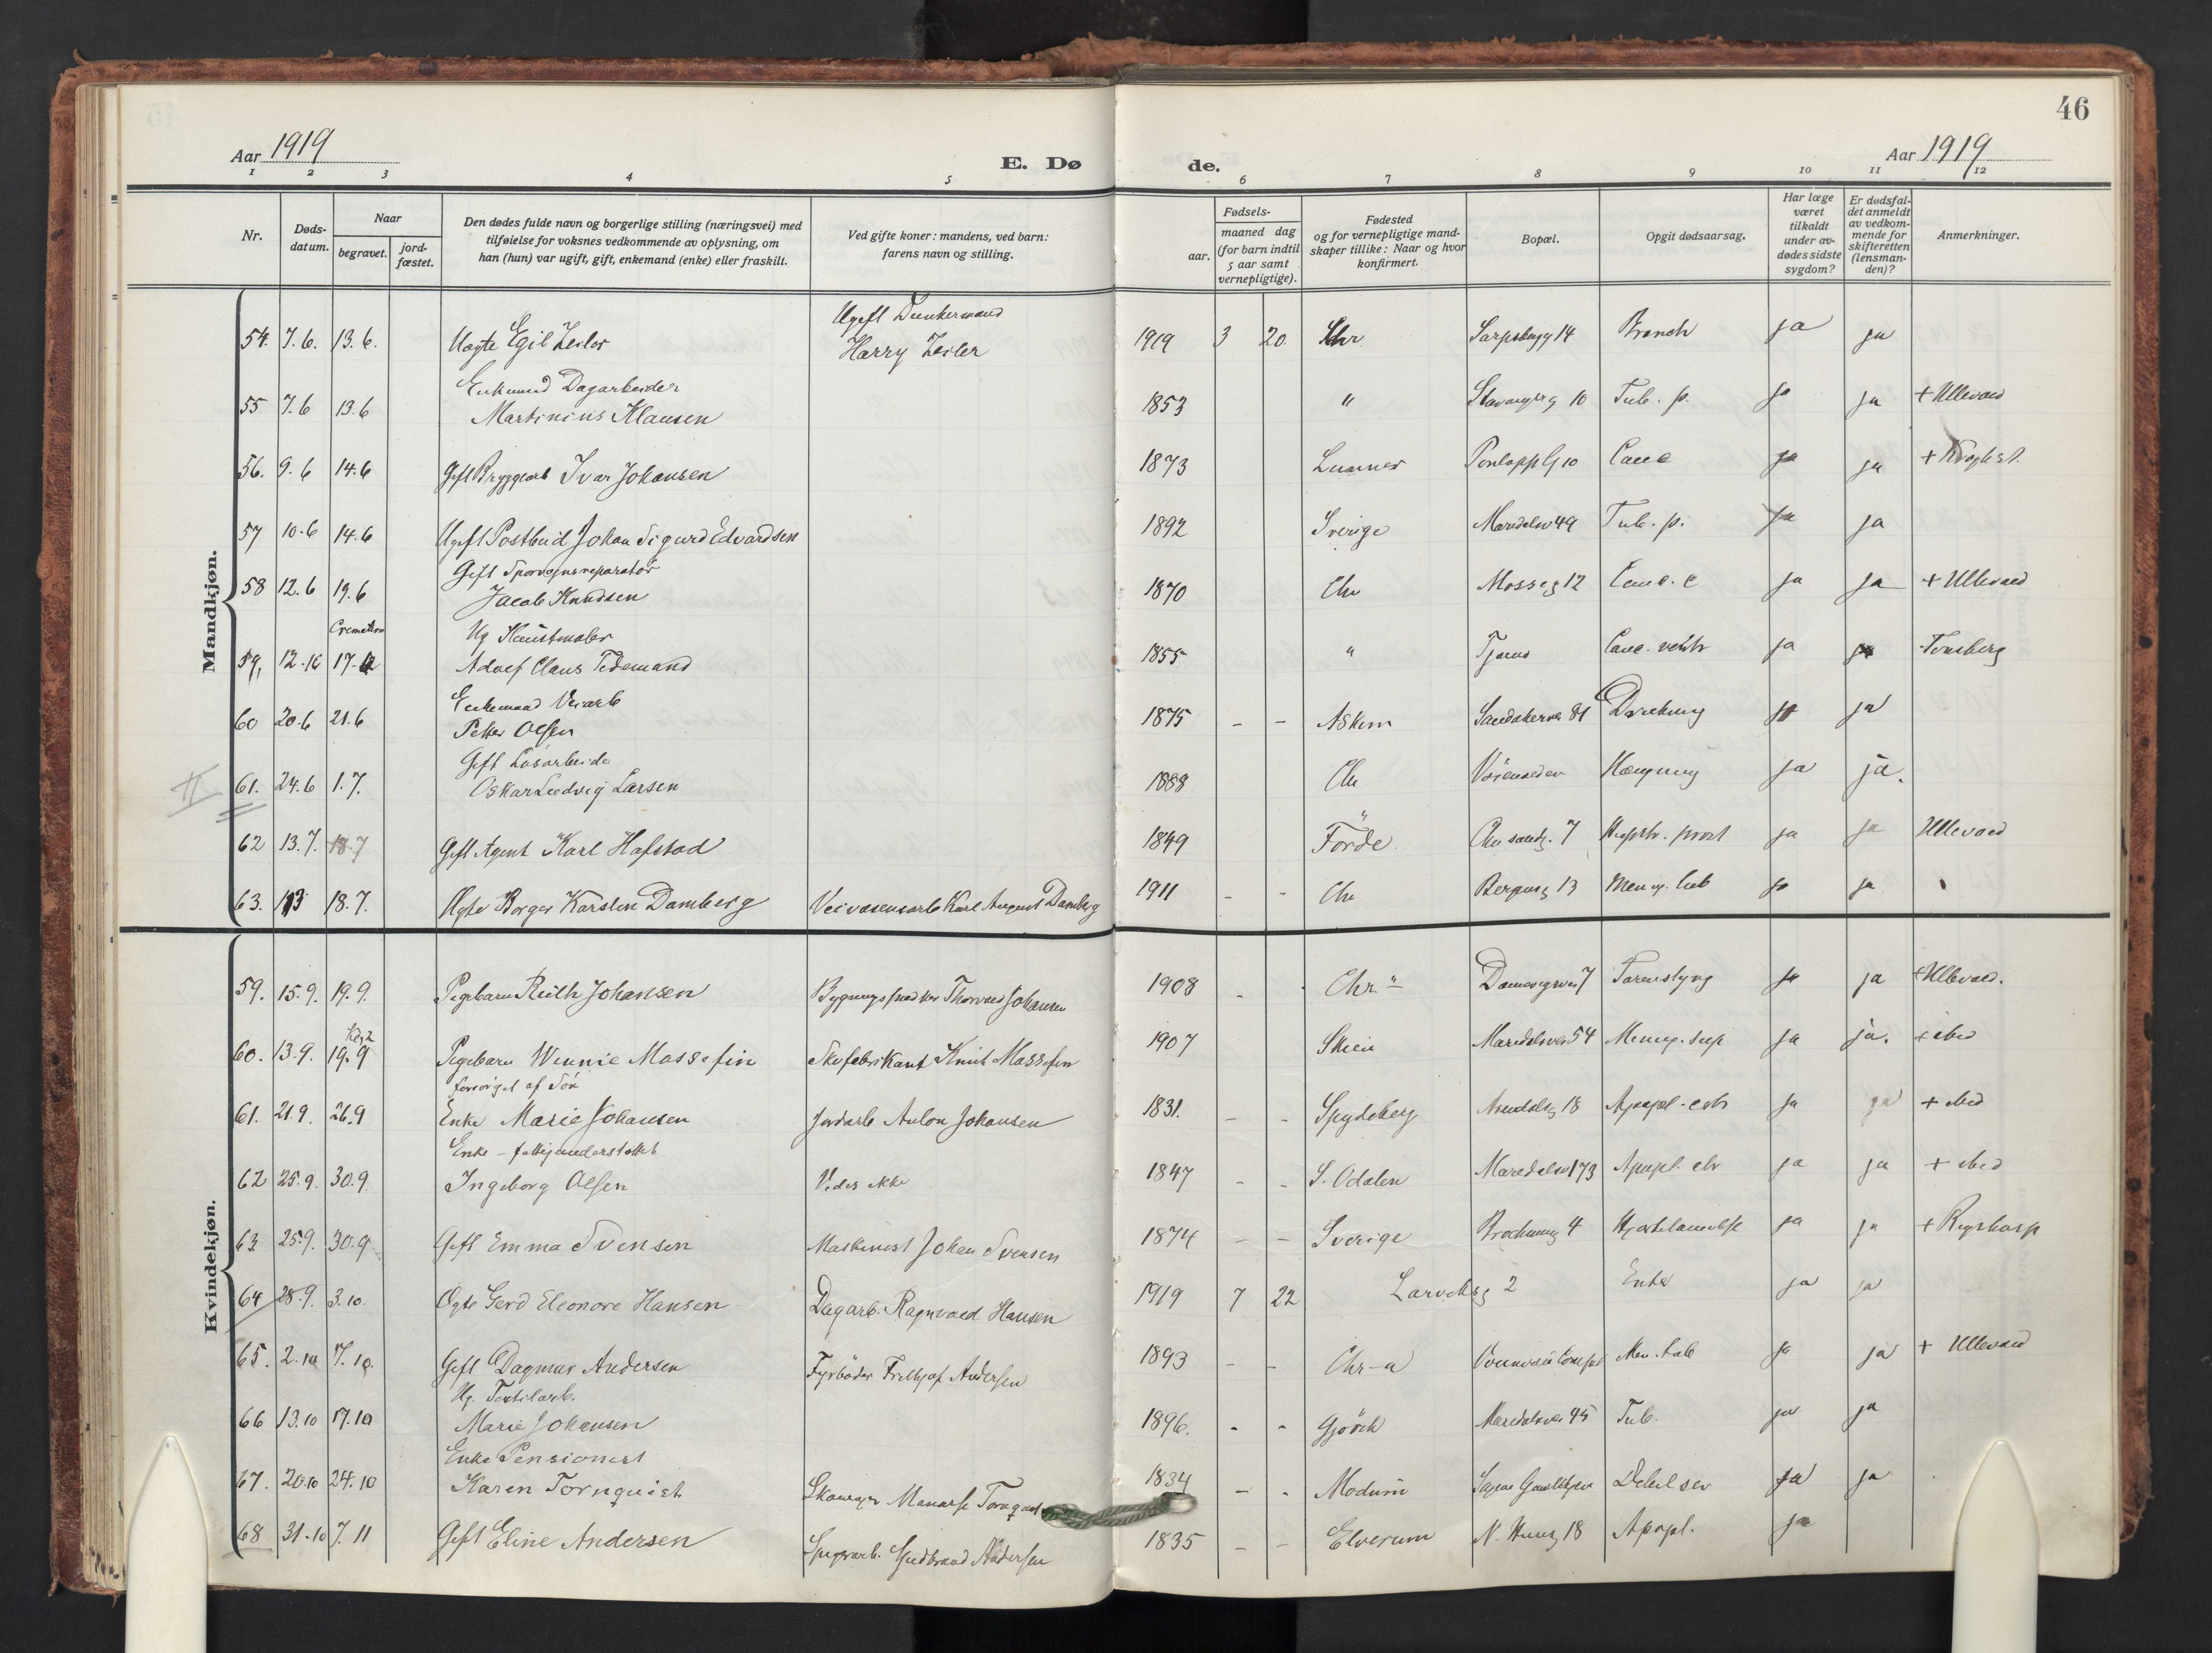 46
Aar 1919
E. Dø de.
Aar 1919
1 2 3 4 5 6 7 8 9 10 11 12
Nr.
Døds-
datum.
Naar
begravet.
jord-
fæstet.
Den dødes fulde navn og borgerlige stilling (næringsvei) med
tilføielse for voksnes vedkommende av oplysning, om
han (hun) var ugift, gift, enkemand (enke) eller fraskilt.
Ved gifte koner: mandens, ved barn:
farens navn og stilling.
Fødsels-
aar.
maaned dag
(for barn indtil
5 aar samt
vernepligtige).
Fødested
og for vernepligtige mand-
skaper tillike: Naar og hvor
konfirmert.
Bopæl.
Opgit dødsaarsag.
Har læge
været
tilkaldt
under av-
dødes sidste
sygdom?
Er dødsfal-
det anmeldt
av vedkom-
mende for
skifteretten
(lensman-
den)?
Anmerkninger.
Mandkjøn.
Ugift
54. 7.6. 13.6. Uægte Egil Zeiler Harry Zeiler 1919 3 20 Chr 14 Bronch ja ja
Enkemand Dagarbeider
55 7.6 13.6 Martinius Klausen 1853 " 10 Tub. p. ja ja +Ullevaal
56. 9.6 14.6 Gift Bryggearb Ivar Johansen 1873 Lunner 10 Canc ja ja +
57 10.6 14.6 Ugift Postbud Johan Sigurd Edvardsen 1892 Sverige 49 Tub. p. ja ja
Gift Sporvognsreparatør
58 12.6 19.6 Jacob Knudsen 1870 Chr Mosseg 12 Canc. ja ja + Ullevaal
Cremation
Ug Kunstmaler
59. 17. Adolf Claus Tidemand 1855 " Canc. ventr ja ja Tønsberg
Enkemand Veiarb
60 20.6 21.6 Petter Olsen 1875 - - Askim 81 Drukning ja ja
Gift Løsarbeider
II 61. 24.6 1.7. Oskar Ludvig Larsen 1888 Chr Hængning ja ja.
62 13.7. 18.7 Gift Agent Karl Hafstad 1849 Førde 7 Hypertr. prost ja ja Ullevaal
63. 18.7. Ægte Borger Karsten Damberg Veivæsensarb Karl August Damberg 1911 - - Chr Bergensg 13 Mening. tub ja ja
Kvindekjøn.
59. 15.9. 19.9. Pigebarn Ruth Johansen Thorvald Johansen 1908 - Chr. 7 ja ja +Ullevaal.
60. 13.9. 19.9 Pigebarn Wennie Skofabrikant Knut 1907 Skien Maridalsvei 54 Mening. ja ja. + ibid
forsørget af Søn
61. 21.9. 26.9 Enke Marie Johansen Jordarb Anton Johansen 1831. - - Spydeberg Arendalsg 18 Apopl. ja ja + ibid
Enke - fattigunderstøttet
62 25.9. 30.9. Ingeborg Olsen Vides ikke 1847 - - S. Odalen 173 Apopl. ja ja + ibid
63. 25.9. 30.9 Gift Emma Svensen Maskinist Johan Svensen 1874 - - Sverige 4 Hjertelammelse ja ja + Rigshosp
64 28.9. 3.10. Ægte Gerd Eleonore Hansen Dagarb. Ragnvald Hansen 1919 7 22 Larviksg 2 Enter ja ja
65. 2.10 7.10. Gift Dagmar Andersen Fyrbøder Frithjof Andersen 1893 - - Chr-a Men. tub ja ja + Ullevaal
Ug. Textilarb.
66 13.10 17.10 Marie Johansen 1896. - - Gjøvik Maridalsvei 45 Tub. ja ja
Enke Pensionert
67. 20.10 24.10 Karen Tornquist Tornquist 1834 - - Modum Debil sen ja ja
68 31.10 7.11 Gift Eline Andersen Gudbrand Andersen 1835 - - Elverum 18 Apopl. ja